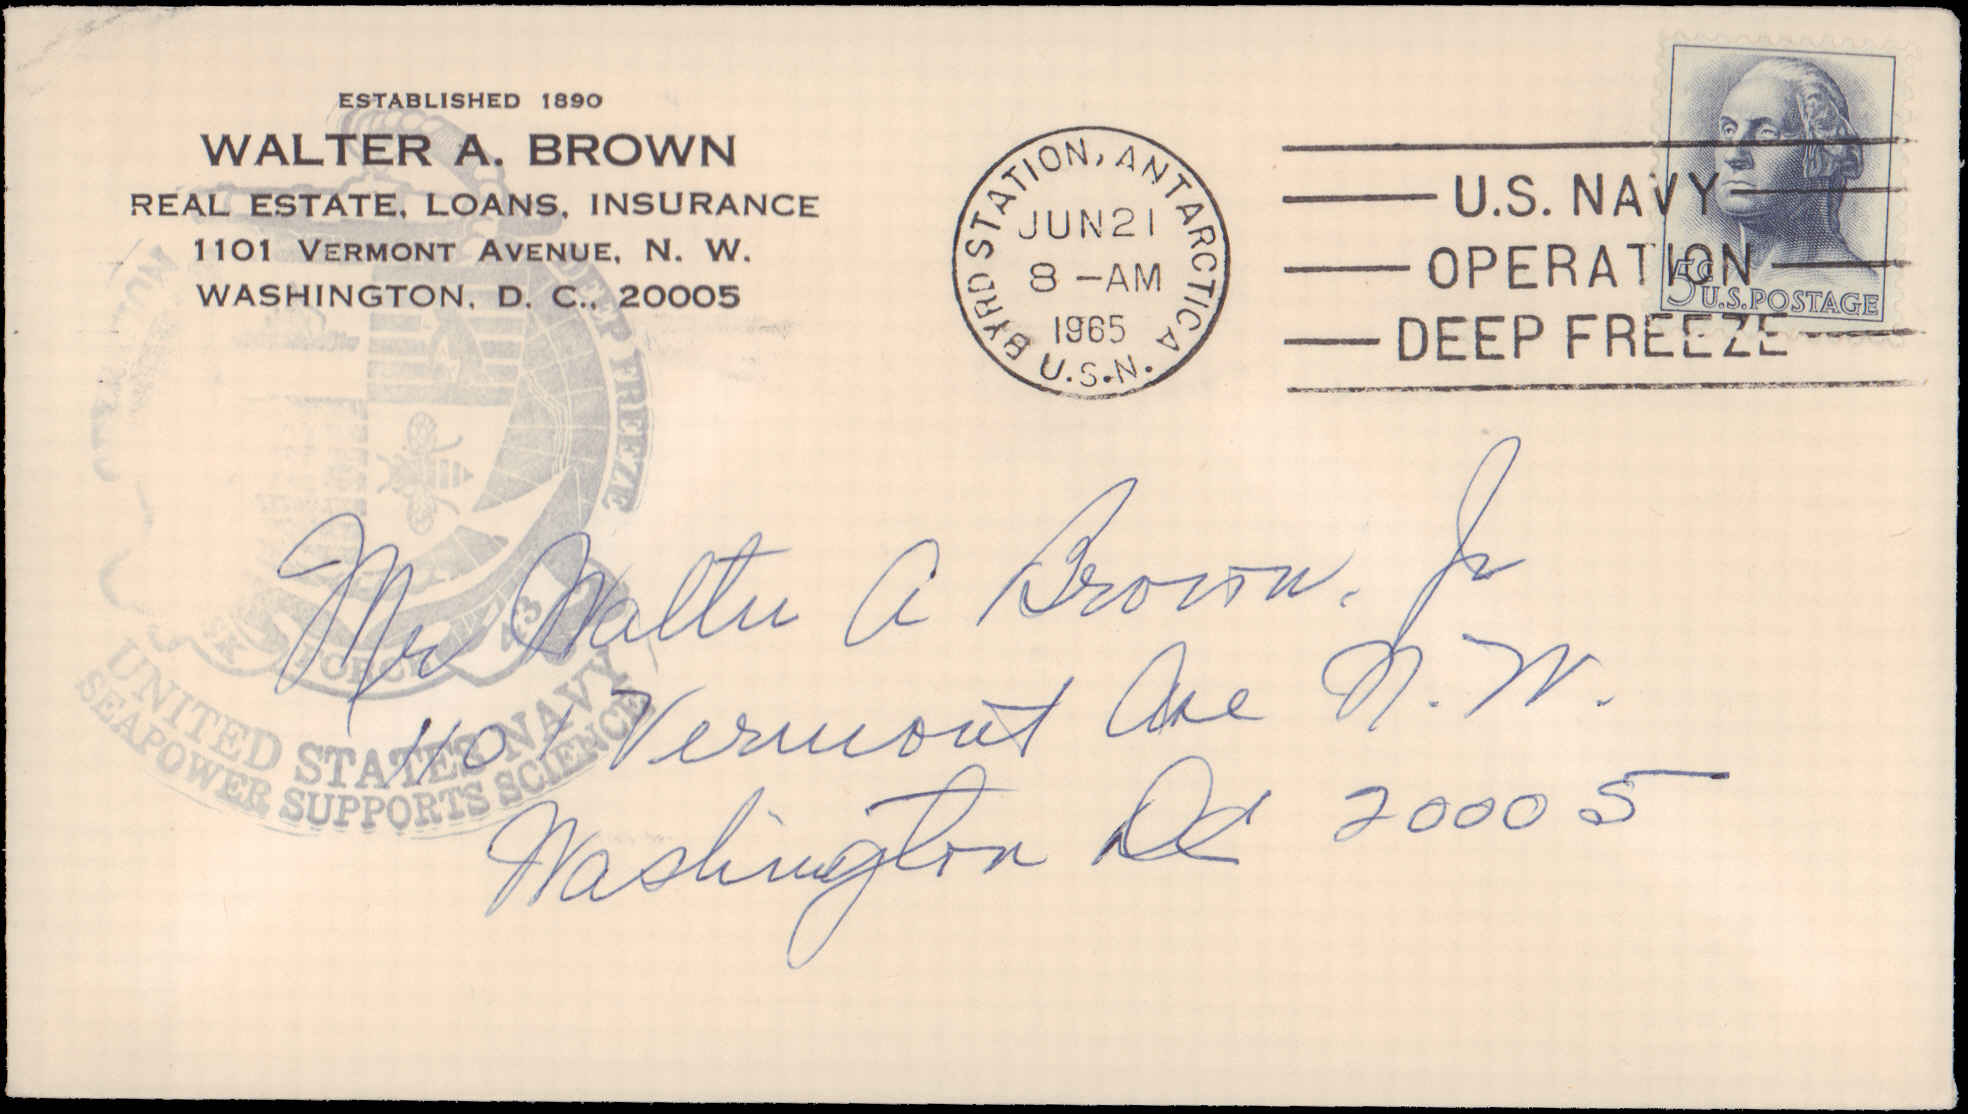 ESTABLISHED 1890
WALTER A. BROWN
REAL ESTATE, LOANS, INSURANCE
1101 VERMONT AVENUE, N. W.
WASHINGTON, D. C., 20005
BYRD STATION, ANTARCTICA
JUN 21
8 -AM
1965
U.S.N.
U.S. NAVY
OPERATION
DEEP FREEZE
5¢
U.S. POSTAGE
DEEP FREEZE
FORCE 43
UNITED STATES NAVY
SEAPOWER SUPPORTS SCIENCE
Mr Walter A Brown, Jr
1101 Vermont Ave N.W.
Washington DC 20005